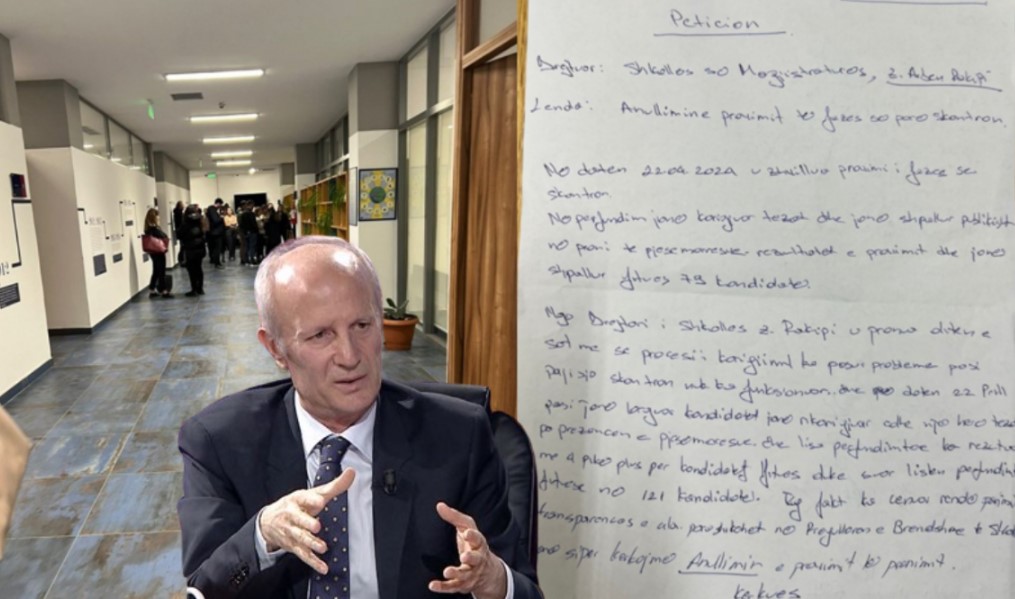 Peticion
Drejtuar: Shkolles se Magjistratures, z. Arben Rakipi
Lenda: Anullimin e provimit te fazes se pare skantron.
Ne daten 22.04.2024 u zhvillua provimi i fazes se
skantron.
Ne perfundim jane korigjuar tezat dhe jane shpallur publikisht
ne prani te pjesemaresve rezultatet e provimit dhe jane
shpallur fitues 79 kandidatet.
Nga Drejtori i Shkolles z. Rakipi u pranua diten e
sotme se procesi i korigjimit ka pasur probleme pasi
pajisja skantron nuk ka funksionuar dhe daten 22 Prill
pasi jane larguar kandidatet jane rikorigjuar edhe nje here tezat
pa prezencen e pjesemaresve dhe lista perfundimtare ka rezultu
me 4 pike plus per kandidatet fitues duke cuar listen perfundi
fituese ne 121 kandidatet. Ky fakt ka cenuar rende parimi
transparences e cila parashikohet ne Rregulloren e Brendshme te Shko
me siper kerkojme Anullimin e provimit te pranimit.